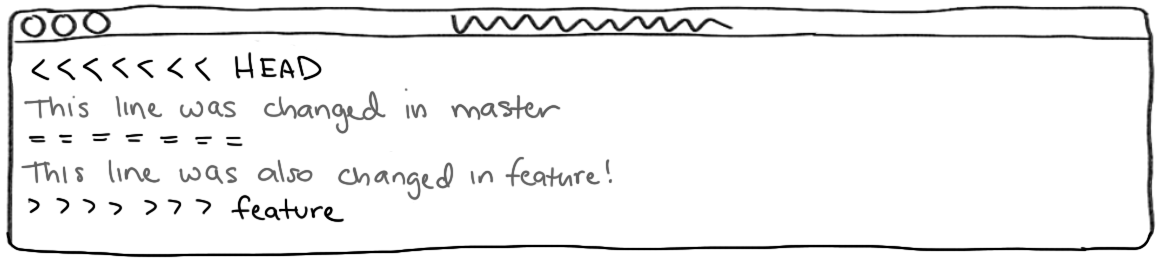 <<<<<<< HEAD
This line was changed in master
=======
This line was also changed in feature!
>>>>>>> feature